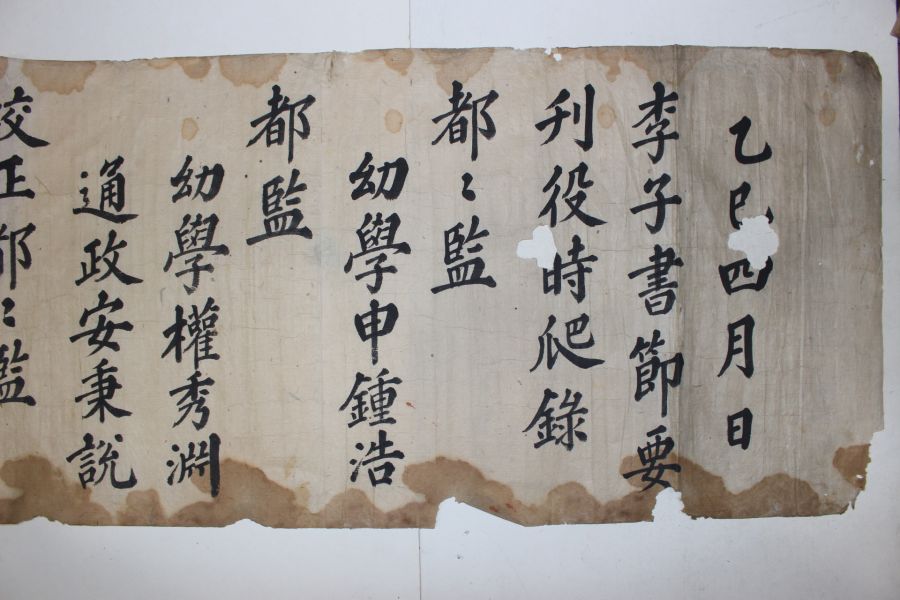 乙巳四月日
李子書節要
刋役時爬錄
都〻監
幼學申鍾浩
都監
幼學權秀淵
通政安秉說
校正都〻監